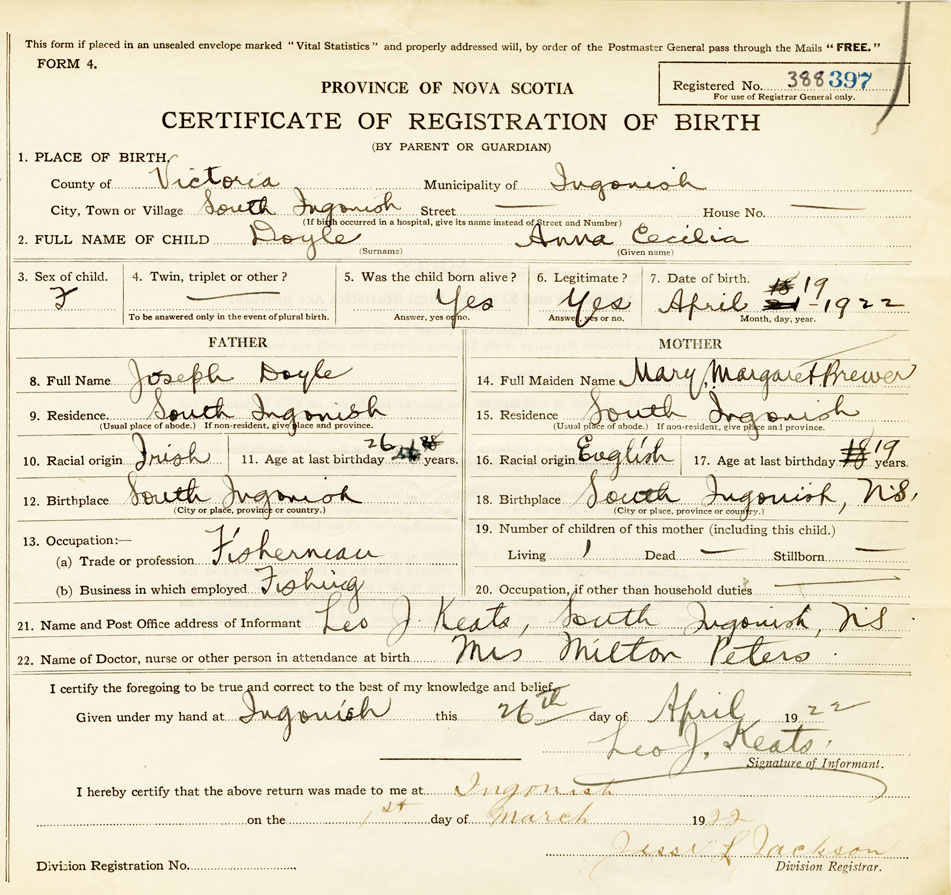 This form if placed in an unsealed envelope marked "Vital Statistics" and properly addressed will, by order of the Postmaster General pass through the Mails "FREE."
FORM 4.
Registered No. 388397
For use of Registrar General only.
PROVINCE OF NOVA SCOTIA
CERTIFICATE OF REGISTRATION OF BIRTH
(BY PARENT OR GUARDIAN)
1. PLACE OF BIRTH,
County of Victoria Municipality of Ingonish
City, Town or Village South Ingonish Street — House No. —
(If birth occurred in a hospital, give its name instead of Street and Number)
2. FULL NAME OF CHILD Doyle Anna Cecilia
(Surname) (Given name)
3. Sex of child. 4. Twin, triplet or other? 5. Was the child born alive? 6. Legitimate? 7. Date of birth.
F — Yes Yes April 19 1922
To be answered only in the event of plural birth. Answer, yes or no. Answer, yes or no. Month, day, year.
FATHER MOTHER
8. Full Name Joseph Doyle 14. Full Maiden Name Mary Margaret Brewer
9. Residence South Ingonish 15. Residence South Ingonish
(Usual place of abode.) If non-resident, give place and province. (Usual place of abode.) If non-resident, give place and province.
10. Racial origin Irish 11. Age at last birthday 26 years. 16. Racial origin English 17. Age at last birthday 19 years.
12. Birthplace South Ingonish 18. Birthplace South Ingonish, N.S.
(City or place, province or country.) (City or place, province or country.)
13. Occupation:— 19. Number of children of this mother (including this child.)
(a) Trade or profession Fisherman Living 1 Dead — Stillborn —
(b) Business in which employed Fishing 20. Occupation, if other than household duties —
21. Name and Post Office address of Informant Leo J Keats, South Ingonish, NS.
22. Name of Doctor, nurse or other person in attendance at birth Mrs Milton Peters.
I certify the foregoing to be true and correct to the best of my knowledge and belief.
Given under my hand at Ingonish this 26th day of April 1922
Leo J. Keats.
Signature of Informant.
I hereby certify that the above return was made to me at Ingonish
on the 1st day of March 1922
Jackson
Division Registration No. Division Registrar.